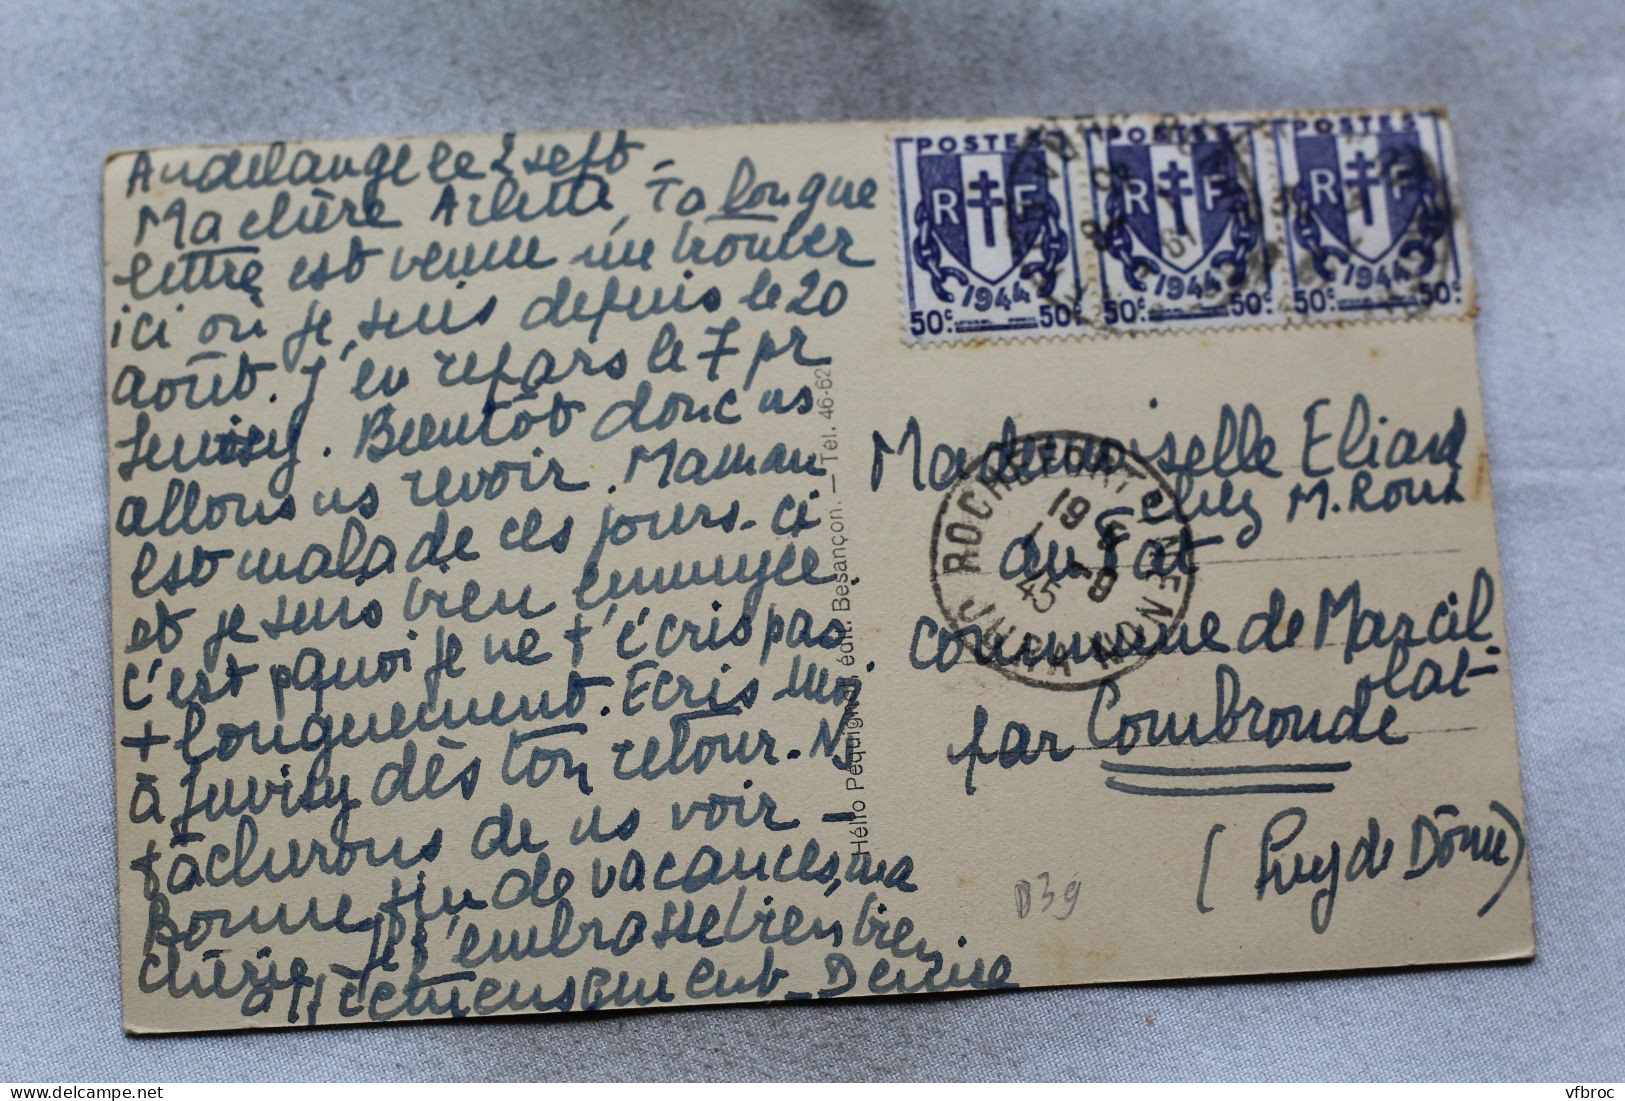 Audelange le 2 sept -
Ma chère Arlette, Ta longue
lettre est venue me trouver
ici où je suis depuis le 20
août. J'en repars le 7 pr
Juvisy. Bientôt donc ns
allons ns revoir. Maman
est malade ces jours-ci
et je suis bien ennuyée
c'est pquoi je ne t'écris pas
+ longuement. Ecris moi
à Juvisy dès ton retour. N
tâcherons de ns voir -
Bonne fin de vacances, ma
chérie je t'embrasse bien bien
affectueusement - Denise
Hélio Péquignot, édit. Besançon. — Tél. 46-62
POSTES POSTES POSTES
R F R F R F
1944 1944 1944
50c 50c 50c 50c 50c 50c
ROCHEFORT S NENON
JURA
19 15
1 -9
45
Mademoiselle Eliard
chez M. Roux
au Fat
commune de Marcil
lat -
par Combronde
(Puy de Dôme)
D39
vfbroc